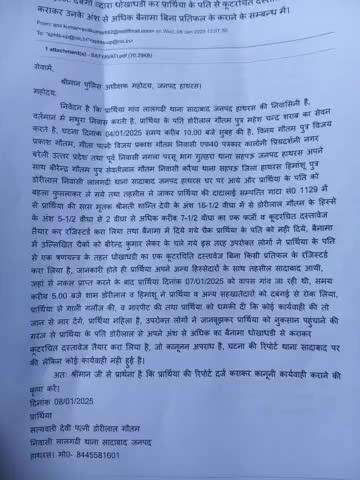 दबंगो द्वारा धोखाधडी कर प्रार्थिया के पति से कूटरचित दस्तावेज
कराकर उनके अंश से अधिक बैनामा बिना प्रतिफल के कराने के सम्बन्ध में।
1 attachment(s)
सेवामें,
श्रीमान पुलिस अधीक्षक महोदय, जनपद हाथरस।
महोदय,
निवेदन है कि प्रार्थिया गांव लालगढी थाना सादाबाद जनपद हाथरस की निवासिनी है,
वर्तमान में मथुरा निवास करती है, प्रार्थिया के पति डोरीलाल गौतम पुत्र महेश चन्द्र शराब का सेवन
करते है, घटना दिनांक 04/01/2025 समय करीब 10.00 बजे सुबह की है, विनय गौतम पुत्र विजय
प्रकाश गौतम, गीता पत्नी विजय प्रकाश गौतम निवासी एफ40 पत्रकार कालोनी प्रियदर्शनी नगर
बरेली उत्तर प्रदेश तथा पूर्व निवासी नगला परसू माग गुतहरा थाना सहपऊ जनपद हाथरस अपने
साथ बीरेन्द्र गौतम पुत्र सेवारीलाल गौतम निवासी करैया थाना सहपऊ जिला हाथरस हिमांशू पुत्र
डोरीलाल निवासी लालगढी थाना सादाबाद जनपद हाथरस घर पर आये और प्रार्थिया के पति को
बहला फुसलाकर ले गये तथा तहसील ले जाकर प्रार्थिया की दादालाई सम्पत्ति गाटा सं0 1129 में
से प्रार्थिया की सास मृतक श्रीमती शान्ति देवी के अंश 16-1/2 वीघा में से डोरीलाल गौतम के हिस्से
के अंश 5-1/2 वीघा से 2 वीघा से अधिक करीब 7-1/2 वीघा का एक फर्जी व कूटरचित दस्तावेज
तैयार कर रजिस्टर्ड करा लिया तथा बैनामा में दिये गये चैक प्रार्थिया के पति को नही दिये, बैनामा
में उल्लिखित चैकों को बीरेन्द्र कुमार लेकर के चले गये इस तरह उपरोक्त लोगों ने प्रार्थिया के पति
से एक षणयन्त्र के तहत धोखाधडी का एक कूटरचित दस्तावेज बिना किसी प्रतिफल के रजिस्टर्ड
करा लिया है, जानकारी होते ही प्रार्थिया अपने अन्य हिस्सेदारों के साथ तहसील सादाबाद आयी,
जहां से नकल प्राप्त करने के बाद प्रार्थिया दिनांक 07/01/2025 को वापस गांव जा रही थी, समय
करीब 5.00 बजे शाम डोरीलाल व हिमांशु ने प्रार्थिया व अन्य सहखातेदारों को दबगई से रोक लिया,
प्रार्थिया से गाली गलौज की, व मारपीट की तथा प्रार्थिया को धमकी दी कि कोई कार्यवाही की तो
जान से मार देंगे, प्रार्थिया महिला है, उपरोक्त लोगों ने जानबूझकर प्रार्थिया को नुकसान पहुंचाने की
गरज से प्रार्थिया के पति डोरीलाल से अपने अंश से अधिक का बैनामा धोखाधडी से कराकर
कूटरचित दस्तावेज तैयार करा लिया है, जो कानूनन अपराध है, घटना की रिपोर्ट थाना सादाबाद पर
की लेकिन कोई कार्यवाही नही हुई है।
अतः श्रीमान जी से प्रार्थना है कि प्रार्थिया की रिपोर्ट दर्ज कराकर कानूनी कार्यवाही कराने की
कृपा करें।
दिनांक 08/01/2025
प्रार्थिया
सत्यवती देवी पत्नी डोरीलाल गौतम
निवासी लालगढी थाना सादाबाद जनपद
हाथरस। मो0- 8445581601